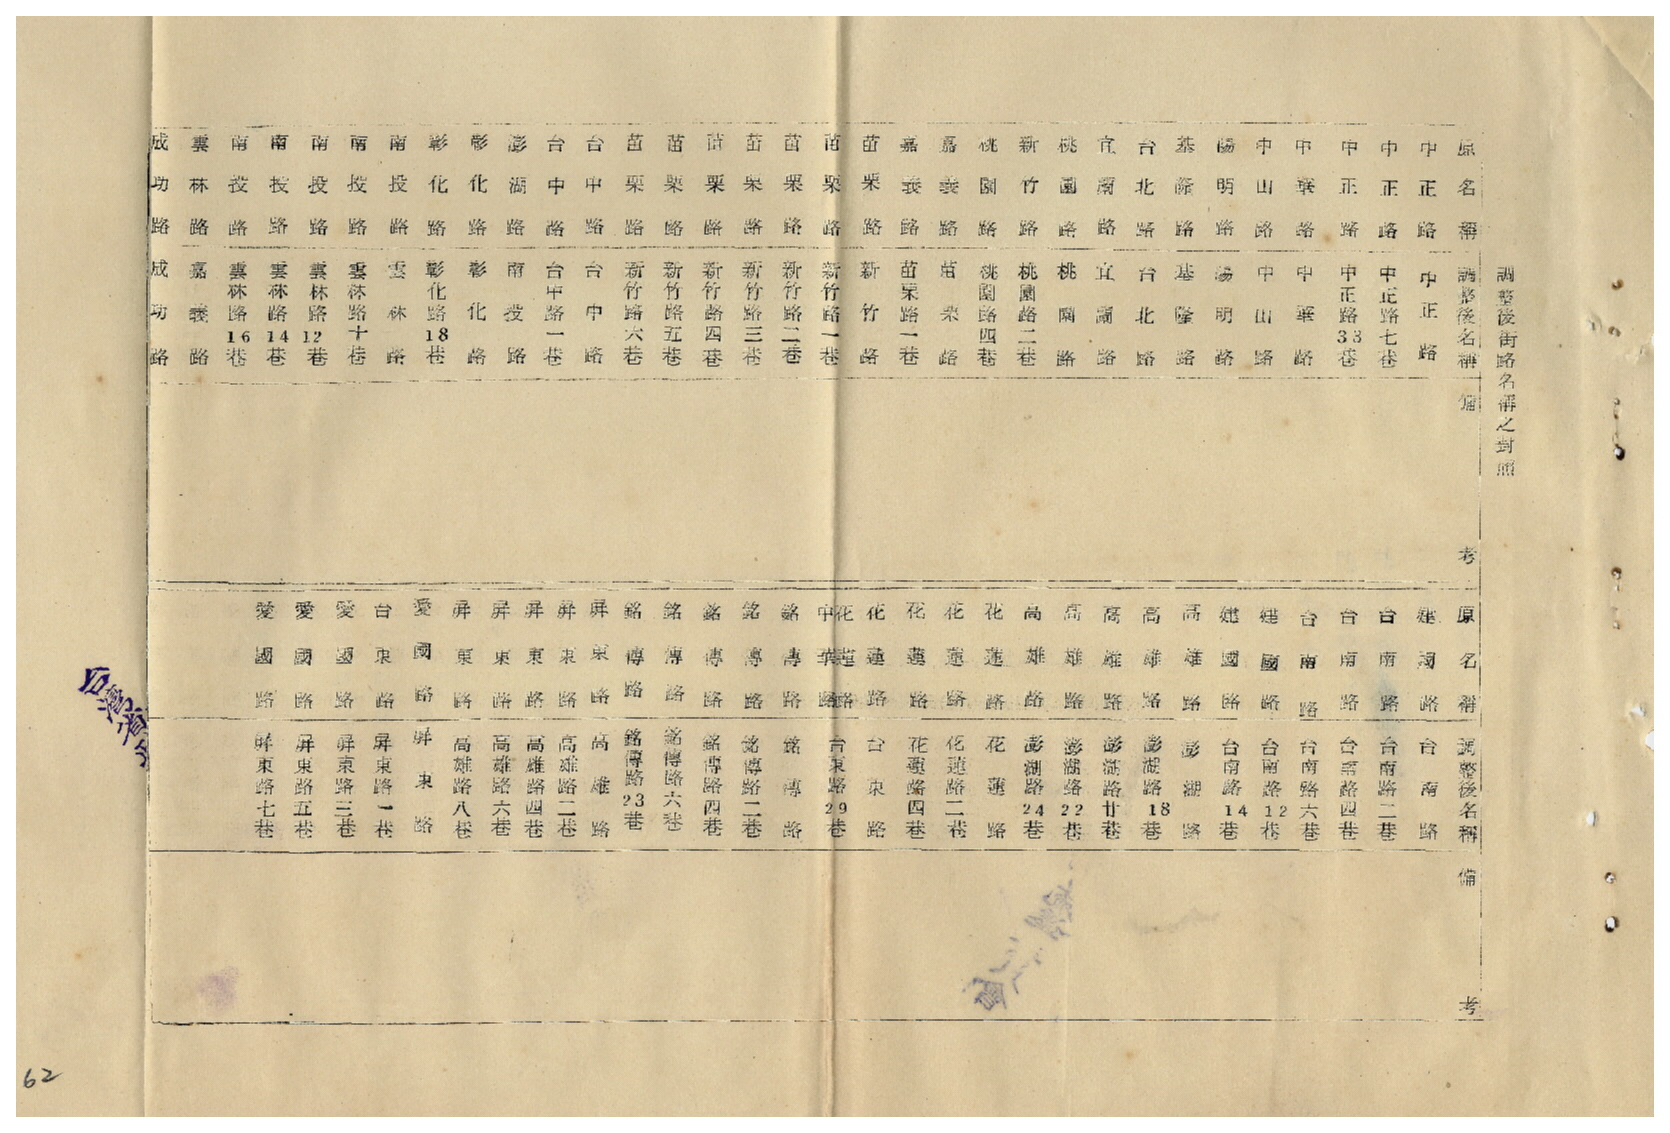 調整後街路名稱之對照
原名稱 調整後名稱 備考
中正路 中正路
中正路 中正路七巷
中正路 中正路33巷
中華路 中華路
中山路 中山路
陽明路 陽明路
基隆路 基隆路
台北路 台北路
宜蘭路 宜蘭路
桃園路 桃園路
新竹路 桃園路二巷
桃園路 桃園路四巷
嘉義路 苗栗路
嘉義路 苗栗路一巷
苗栗路 新竹路
苗栗路 新竹路一巷
苗栗路 新竹路二巷
苗栗路 新竹路三巷
苗栗路 新竹路四巷
苗栗路 新竹路五巷
苗栗路 新竹路六巷
台中路 台中路
台中路 台中路一巷
澎湖路 南投路
彰化路 彰化路
彰化路 彰化路18巷
南投路 雲林路
南投路 雲林路十巷
南投路 雲林路12巷
南投路 雲林路14巷
南投路 雲林路16巷
雲林路 嘉義路
成功路 成功路
原名稱 調整後名稱 備考
建國路 台南路
台南路 台南路二巷
台南路 台南路四巷
台南路 台南路六巷
建國路 台南路12巷
建國路 台南路14巷
高雄路 澎湖路
高雄路 澎湖路18
高雄路 澎湖路廿巷
高雄路 澎湖路22巷
高雄路 澎湖路24巷
花蓮路 花蓮路
花蓮路 花蓮路二巷
花蓮路 花蓮路四巷
花蓮路 台東路
花蓮路 中華路 台東路29巷
銘傳路 銘傳路
銘傳路 銘傳路二巷
銘傳路 銘傳路四巷
銘傳路 銘傳路六巷
銘傳路 銘傳路23巷
屏東路 高雄路
屏東路 高雄路二巷
屏東路 高雄路四巷
屏東路 高雄路六巷
屏東路 高雄路八巷
愛國路 屏東路
台東路 屏東路一巷
愛國路 屏東路三巷
愛國路 屏東路五巷
愛國路 屏東路七巷
台灣省
62